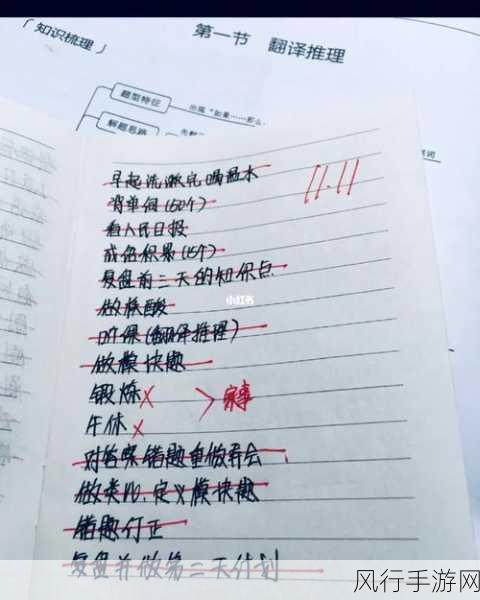 「知识梳理」
第一节 翻译推理
题型特征
出现“如果……那么
解题思路
11.11
早起洗漱完喝温水
背单词(50个)
看人民日报
成语积累(15个)
复盘前三天的知识点
小红书
做核酸
听课(翻译推理)
做模块题
锻炼× > 家事
午休×
对答案错题重做弄会
做类比、定义模块题
错题订正
复盘并做第二天计划
风行手游网